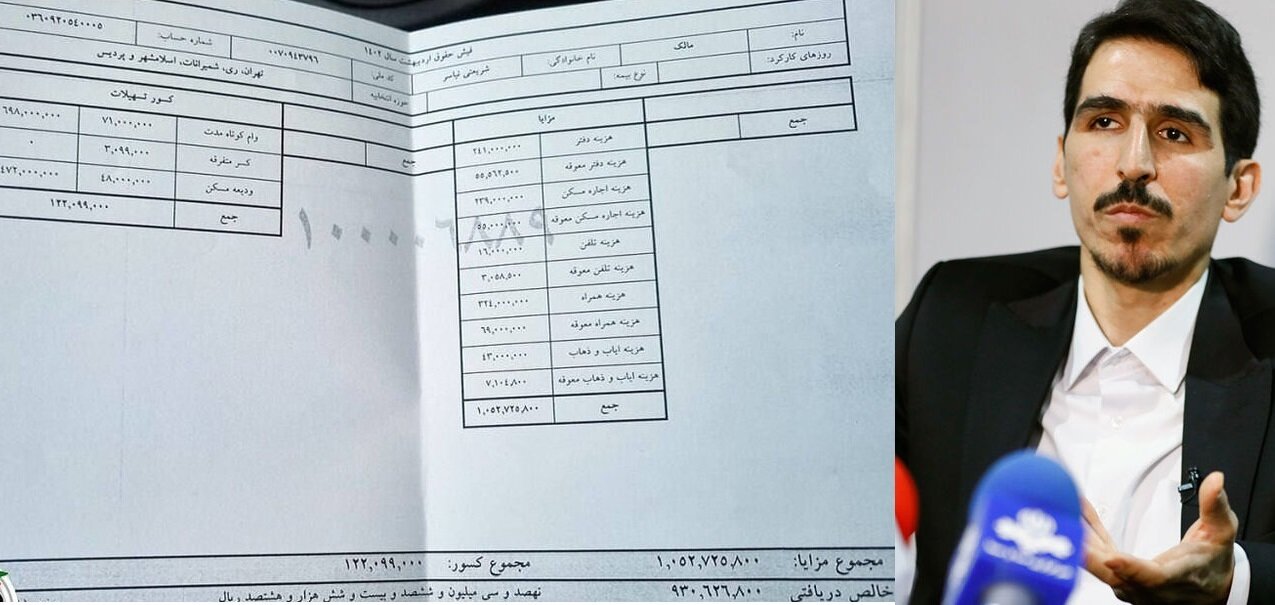 فیش حقوق اردیبهشت سال ۱۴۰۲
نام: مالک
نام خانوادگی: شریعتی نیاسر
کد ملی: ۰۰۷۰۹۴۳۷۹۶
شماره حساب: ۰۳۶۰۹۲۰۵۴۰۰۰۵
روزهای کارکرد:
نوع بیمه:
حوزه انتخابیه تهران، ری، شمیرانات، اسلامشهر و پردیس
جمع
جمع
مزایا
هزینه دفتر ۲۴۱,۰۰۰,۰۰۰
هزینه دفتر معوقه ۵۵,۵۶۲,۵۰۰
هزینه اجاره مسکن ۲۳۹,۰۰۰,۰۰۰
هزینه اجاره مسکن معوقه ۵۵,۰۰۰,۰۰۰
هزینه تلفن ۱۶,۰۰۰,۰۰۰
هزینه تلفن معوقه ۳,۰۵۸,۵۰۰
هزینه همراه ۳۲۴,۰۰۰,۰۰۰
هزینه همراه معوقه ۶۹,۰۰۰,۰۰۰
هزینه ایاب و ذهاب ۴۳,۰۰۰,۰۰۰
هزینه ایاب و ذهاب معوقه ۷,۱۰۴,۸۰۰
جمع ۱,۰۵۲,۷۲۵,۸۰۰
کسور تسهیلات
وام کوتاه مدت ۷۱,۰۰۰,۰۰۰ ۶۹۸,۰۰۰,۰۰۰
کسر متفرقه ۳,۰۹۹,۰۰۰ ۰
ودیعه مسکن ۴۸,۰۰۰,۰۰۰ ۴۷۲,۰۰۰,۰۰۰
جمع ۱۲۲,۰۹۹,۰۰۰
مجموع مزایا: ۱,۰۵۲,۷۲۵,۸۰۰ مجموع کسور: ۱۲۲,۰۹۹,۰۰۰
خالص دریافتی ۹۳۰,۶۲۶,۸۰۰ نهصد و سی میلیون و ششصد و بیست و شش هزار و هشتصد ریال